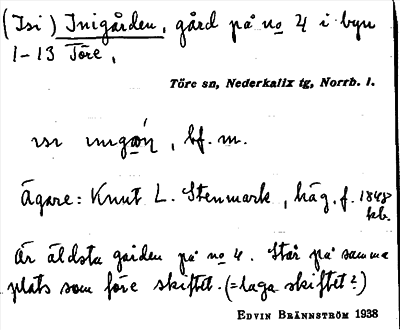 (Isi) Inigården, gård på no 4 i byn
1-13 Töre,
Töre sn, Nederkalix tg, Norrb. l.
ısı , bf. m.
Ägare: Knut L. Stenmark, häg. f. 1848
kb.
Är äldsta gården på no 4. Står på samma
plats som före skiftet. (= laga skiftet?)
EDVIN BRÄNNSTRÖM 1938